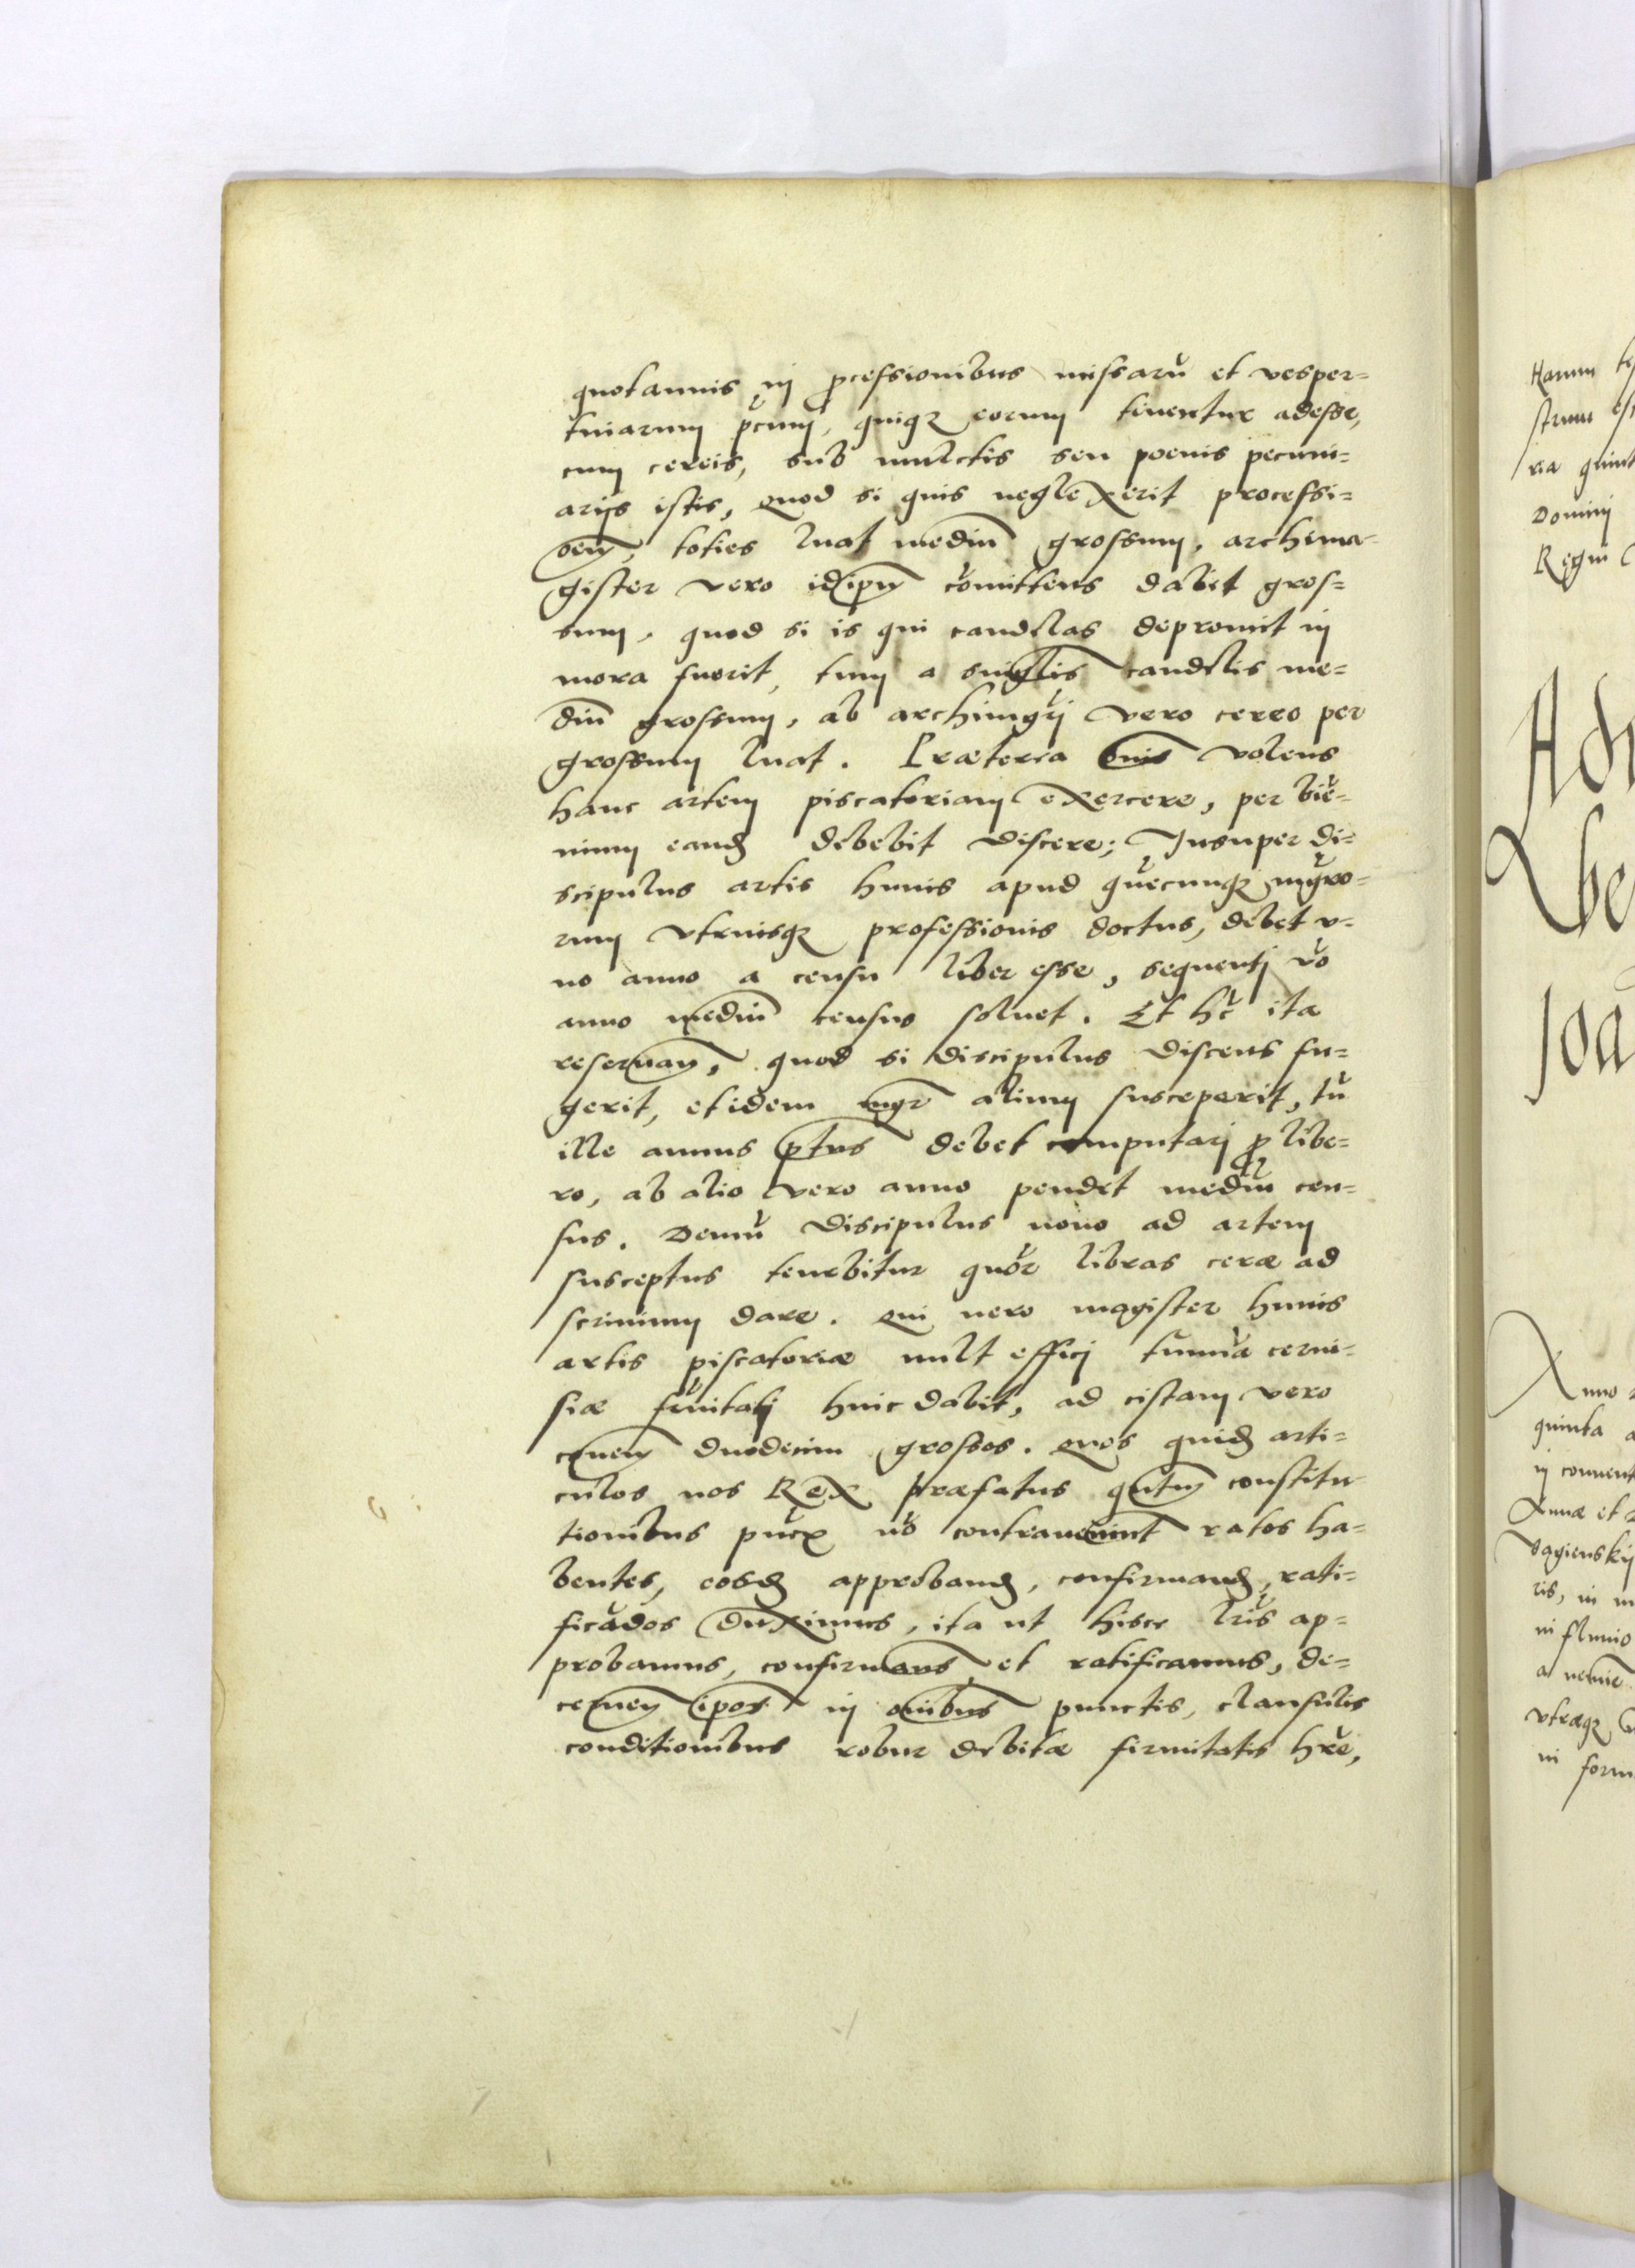 quotannis in ꝓcessionibus missarū et vesper=
tinarum p̄cum, quiqꝫ eorum tenentur adesse,
cum cereis, sub mulctis seu poenis pecuni=
arijs istis, Quod si quis neglexerit processi=
oēm, toties luat mediū grossum, archima-
gister vero idip̄m cōmittens dabit gros=
sum, quod si is qui candelas depromit in
mora fuerit, tum a singlis candelis me=
diū grossum, ab archimgrj vero cereo per
grossum luat. Præterea oīnis volens
hanc artem piscatoriam exercere, per biē=
nium eand debebit discere; Insuper di=
scipulus artis huius apud quēcunqꝫ mgro=
rum vtriusqꝫ professionis doctus, debet v=
no anno a censu liber esse, sequentj vō
anno mediū census soluet. Et hc̄ ita
reseruam, quod si discipulus discens fu=
gerit, et idem mgr̄ alium susceperit, tū
ille annus p̄tus debet computarj ꝓ libe=
ro, ab alio vero anno pendet mediū cen=
sus. Demū discipulus nouo ad artem
susceptus tenebitur quōr libras ceræ ad
scrinium dare. Qui vero magister huius
artis piscatoriæ uult efficj tunnā cerui=
siæ frnitatj huic dabit, ad cistam vero
cōmem duodecim grossos. Quos quid arti=
culos nos Rex præfatus qntm constitu
tionibus pucꝝ nō contraueniunt ratos ha=
bentes, eosd approband, confirmand, rati=
ficādos duximus, ita ut hisce lrīs ap=
probamus, confirmams et ratificamus, de=
cernem ipos in oīnibus punctis, clausulis
conditionibus robur debitæ firmitatis hr̄e,
Harum
ria quint
Dominj
Regni
Joa
Anno
quinta a
in conuent
Annæ et
ris, in m
in fluuio
vtræqꝫ
in form